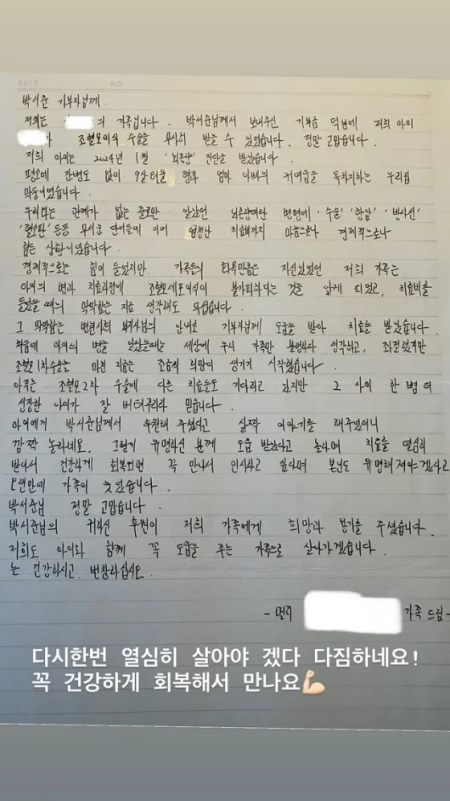 박서준 기부자님께
저희는 의 가족입니다. 박서준님께서 보내주신 기부금 덕분에 저희 아이
가 조혈모이식 수술을 무사히 받을 수 있었습니다. 정말 고맙습니다.
저희 아이는 2024년 1월 '뇌종양' 진단을 받았습니다.
평소에 한번도 없이 엄마 아빠의 귀여움을 독차지하는 우리집
막둥이였습니다.
우리와는 관계가 없는 줄로만 알았던 뇌종양이란 병명에 '수술' '항암' '방사선'
등 무서운 단어들에 이어 엄청난 치료비까지 마음으로나 경제적으로나
힘든 상황이었습니다.
경제적으로는 힘이 들었지만 가족들의 화목만큼은 지켰었던 저희 가족은
아이의 병과 치료과정에 조혈모세포이식이 불가피하다는 것을 알게 되었고, 치료비를
들었을 때의 막막함은 지금 생각해도 무섭습니다.
그 막막함은 병원사회복지사님의 안내로 기부자님께 도움을 받아 치료를 받았습니다.
처음에 아이의 병을 알았을때는 세상에 우리 가족만 불행하다 생각하고, 좌절했지만
조혈모 1차수술을 마친 지금은 조금의 희망이 생기기 시작했습니다.
아직은 조혈모2차 수술에 다른 치료들도 기다리고 있지만 그 사이 한 뼘 더
성장한 아이가 잘 버텨주리라 믿습니다.
아이에게 박서준님께서 후원해 주셨다고 살짝 이야기를 해주었더니
깜짝 놀라네요. 그렇게 유명하신 분께 도움 받았다고 놀라며 치료를 열심히
받아서 건강하게 회복되면 꼭 만나서 인사하고 싶다며 본인도 유명해져야겠다고
오랜만에 가족이 웃었습니다.
박서준님 정말 고맙습니다.
박서준님의 귀하신 후원이 저희 가족에게 희망과 용기를 주셨습니다.
저희도 아이와 함께 꼭 도움을 주는 가족으로 살아가겠습니다.
는 건강하시고 번창하십시오.
- 가족 드림 -
다시한번 열심히 살아야 겠다 다짐하네요!
꼭 건강하게 회복해서 만나요💪🏻